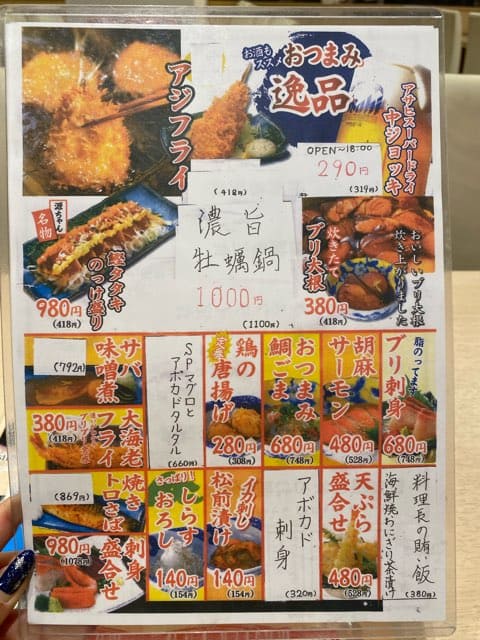 お酒も
ススメ
おつまみ
逸品
アジフライ
(418円)
アサヒスーパードライ
中ジョッキ
OPEN～18:00
290円
(319円)
源ちゃん
名物
鰹タタキ
のっけ盛り
980円
(418円)
濃旨
牡蠣鍋
1000円
(1100円)
炊きたて
ブリ大根
380円
(418円)
おいしいブリ大根
炊き上がりました
サバ
味噌煮
(792円)
大海老
フライ
380円
(418円)
SPマグロと
アボカドタルタル
(660円)
鶏の
唐揚げ
280円
(308円)
おつまみ
鯛ごま
680円
(748円)
胡麻
サーモン
480円
(528円)
脂のってます
ブリ刺身
680円
(748円)
焼き
トロさば
(869円)
刺身
盛合せ
980円
(1078円)
さっぱり!
しらす
おろし
140円
(154円)
イカ刺し
松前漬け
140円
(154円)
アボカド
刺身
(320円)
天ぷら
盛合せ
480円
(528円)
料理長の賄い飯
海鮮焼おにぎり茶漬け
(380円)